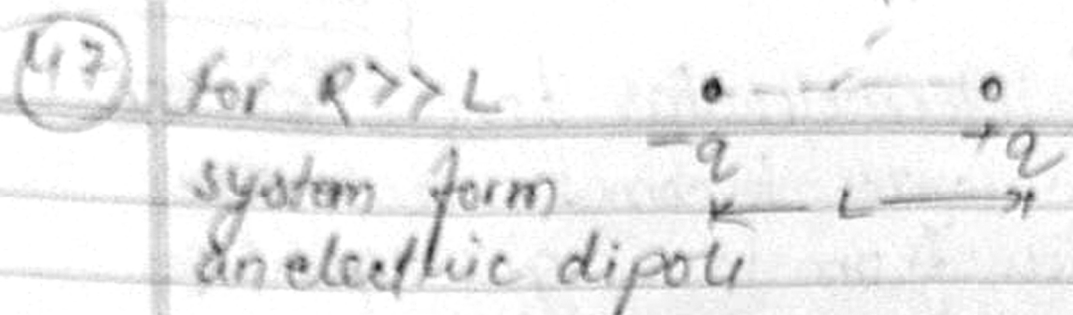 47 for R>>L
-q +q
system form L
an electric dipole